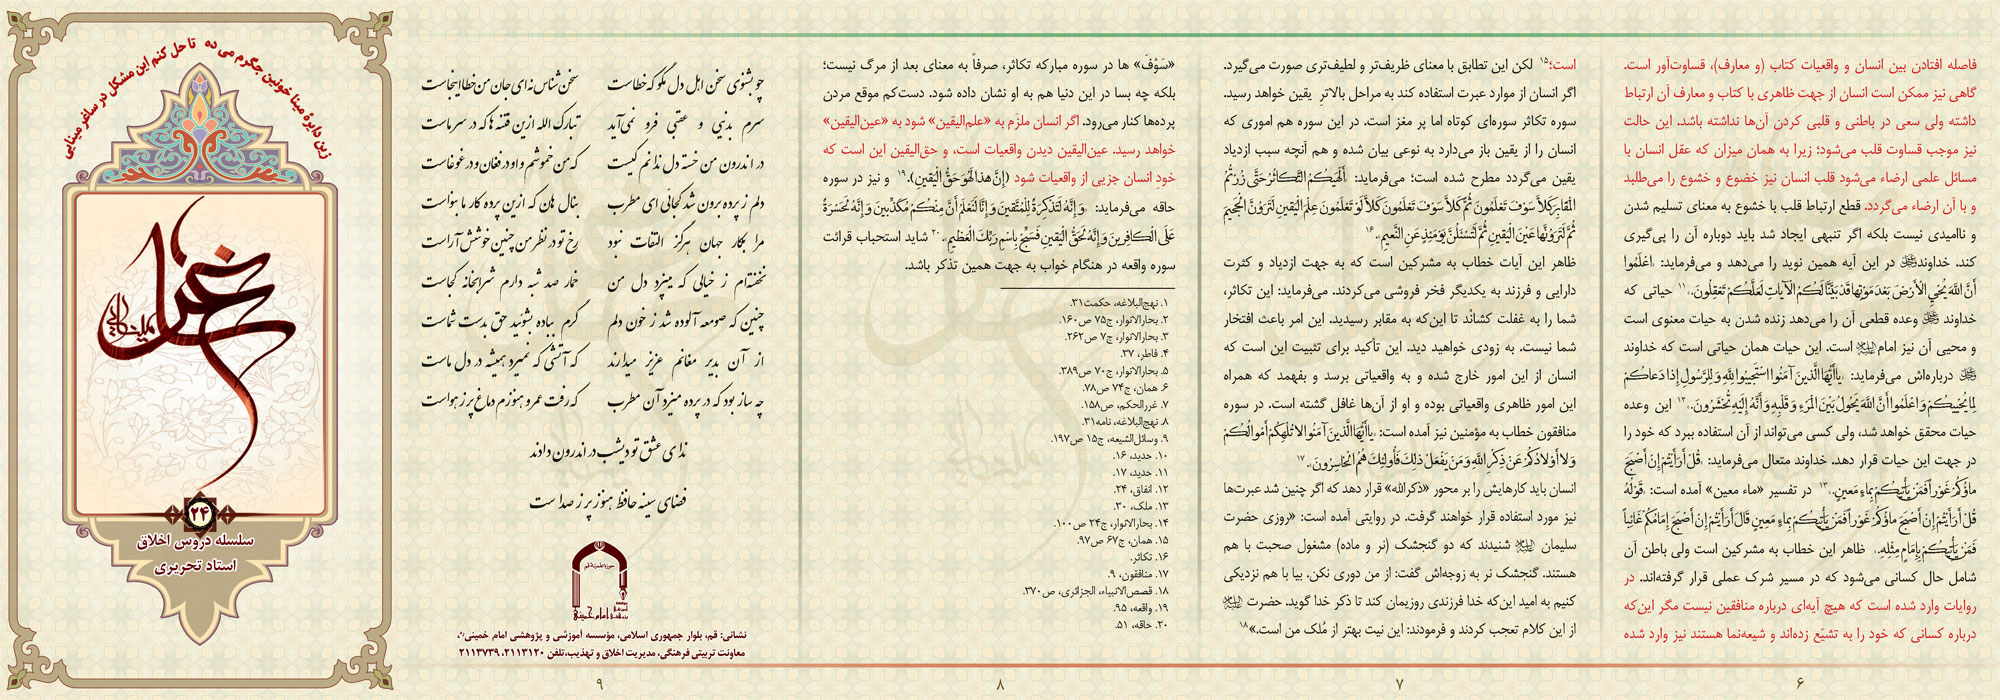 فاصله افتادن بین انسان و واقعیات کتاب (و معارف)، قساوت‌آور است.
گاهی نیز ممکن است انسان از جهت ظاهری با کتاب و معارف آن ارتباط
داشته ولی سعی در باطنی و قلبی کردن آن‌ها نداشته باشد. این حالت
نیز موجب قساوت قلب می‌شود؛ زیرا به همان میزان که عقل انسان با
مسائل علمی ارضاء می‌شود قلب انسان نیز خضوع و خشوع را می‌طلبد
و با آن ارضاء می‌گردد. قطع ارتباط قلب با خشوع به معنای تسلیم شدن
و ناامیدی نیست بلکه اگر تنبهی ایجاد شد باید دوباره آن را پی‌گیری
کند. خداوند در این آیه همین نوید را می‌دهد و می‌فرماید: اعْلَمُوا
أَنَّ اللَّهَ يُحْيِي الْأَرْضَ بَعْدَ مَوْتِهَا قَدْ بَيَّنَّا لَكُمُ الْآيَاتِ لَعَلَّكُمْ تَعْقِلُونَ.۱۱ حیاتی که
خداوند وعده قطعی آن را می‌دهد زنده شدن به حیات معنوی است
و محیی آن نیز امام است. این حیات همان حیاتی است که خداوند
درباره‌اش می‌فرماید: يَا أَيُّهَا الَّذِينَ آمَنُوا اسْتَجِيبُوا لِلَّهِ وَلِلرَّسُولِ إِذَا دَعَاكُمْ
لِمَا يُحْيِيكُمْ وَاعْلَمُوا أَنَّ اللَّهَ يَحُولُ بَيْنَ الْمَرْءِ وَقَلْبِهِ وَأَنَّهُ إِلَيْهِ تُحْشَرُونَ.۱۲ این وعده
حیات محقق خواهد شد، ولی کسی می‌تواند از آن استفاده ببرد که خود را
در جهت این حیات قرار دهد. خداوند متعال می‌فرماید: قُلْ أَرَأَيْتُمْ إِنْ أَصْبَحَ
مَاؤُكُمْ غَوْراً فَمَنْ يَأْتِيكُمْ بِمَاءٍ مَعِينٍ.۱۳ در تفسیر «ماء معین» آمده است: قَوْلُهُ
قُلْ أَرَأَيْتُمْ إِنْ أَصْبَحَ مَاؤُكُمْ غَوْراً فَمَنْ يَأْتِيكُمْ بِمَاءٍ مَعِينٍ قَالَ أَرَأَيْتُمْ إِنْ أَصْبَحَ إِمَامُكُمْ غَائِباً
فَمَنْ يَأْتِيكُمْ بِإِمَامٍ مِثْلِهِ. ظاهر این خطاب به مشرکین است ولی باطن آن
شامل حال کسانی می‌شود که در مسیر شرک عملی قرار گرفته‌اند. در
روایات وارد شده است که هیچ آیه‌ای درباره منافقین نیست مگر این‌که
درباره کسانی که خود را به تشیّع زده‌اند و شیعه‌نما هستند نیز وارد شده
۶
است؛۱۵ لکن این تطابق با معنای ظریف‌تر و لطیف‌تری صورت می‌گیرد.
اگر انسان از موارد عبرت استفاده کند به مراحل بالاترِ یقین خواهد رسید.
سوره تکاثر سوره‌ای کوتاه اما پر مغز است. در این سوره هم اموری که
انسان را از یقین باز می‌دارد به نوعی بیان شده و هم آنچه سبب ازدیاد
یقین می‌گردد مطرح شده است؛ می‌فرماید: أَلْهَيكُمُ التَّكَاثُرُ حَتَّى زُرْتُمُ
الْمَقَابِرَ كَلَّا سَوْفَ تَعْلَمُونَ ثُمَّ كَلَّا سَوْفَ تَعْلَمُونَ كَلَّا لَوْ تَعْلَمُونَ عِلْمَ الْيَقِينِ لَتَرَوُنَّ الْجَحِيمَ
ثُمَّ لَتَرَوُنَّهَا عَيْنَ الْيَقِينِ ثُمَّ لَتُسْئَلُنَّ يَوْمَئِذٍ عَنِ النَّعِيمِ.۱۶
ظاهر این آیات خطاب به مشرکین است که به جهت ازدیاد و کثرت
دارایی و فرزند به یکدیگر فخر فروشی می‌کردند. می‌فرماید: این تکاثر،
شما را به غفلت کشاند تا این‌که به مقابر رسیدید. این امر باعث افتخار
شما نیست. به زودی خواهید دید. این تأکید برای تثبیت این است که
انسان از این امور خارج شده و به واقعیاتی برسد و بفهمد که همراه
این امور ظاهری واقعیاتی بوده و او از آن‌ها غافل گشته است. در سوره
منافقون خطاب به مؤمنین نیز آمده است: يَا أَيُّهَا الَّذِينَ آمَنُوا لَا تُلْهِكُمْ أَمْوَالُكُمْ
وَلَا أَوْلَادُكُمْ عَنْ ذِكْرِ اللَّهِ وَمَنْ يَفْعَلْ ذَلِكَ فَأُولَئِكَ هُمُ الْخَاسِرُونَ.۱۷
انسان باید کارهایش را بر محور «ذکرالله» قرار دهد که اگر چنین شد عبرت‌ها
نیز مورد استفاده قرار خواهند گرفت. در روایتی آمده است: «روزی حضرت
سلیمان شنیدند که دو گنجشک (نر و ماده) مشغول صحبت با هم
هستند. گنجشک نر به زوجه‌اش گفت: از من دوری نکن، بیا با هم نزدیکی
کنیم به امید این‌که خدا فرزندی روزیمان کند تا ذکر خدا گوید. حضرت
از این کلام تعجب کردند و فرمودند: این نیت بهتر از مُلک من است.»۱۸
۷
«سَوْفَ» ها در سوره مبارکه تکاثر، صرفاً به معنای بعد از مرگ نیست؛
بلکه چه بسا در این دنیا هم به او نشان داده شود. دست‌کم موقع مردن
پرده‌ها کنار می‌رود. اگر انسان ملزم به «علم‌الیقین» شود به «عین‌الیقین»
خواهد رسید. عین‌الیقین دیدن واقعیات است، و حق‌الیقین این است که
خود انسان جزیی از واقعیات شود (إِنَّ هَذَا لَهُوَ حَقُّ الْيَقِينِ).۱۹ و نیز در سوره
حاقه می‌فرماید: وَإِنَّهُ لَتَذْكِرَةٌ لِلْمُتَّقِينَ وَإِنَّا لَنَعْلَمُ أَنَّ مِنْكُمْ مُكَذِّبِينَ وَإِنَّهُ لَحَسْرَةٌ
عَلَى الْكَافِرِينَ وَإِنَّهُ لَحَقُّ الْيَقِينِ فَسَبِّحْ بِاسْمِ رَبِّكَ الْعَظِيمِ.۲۰ شاید استحباب قرائت
سوره واقعه در هنگام خواب به جهت همین تذکر باشد.
۱. نهج‌البلاغه، حکمت۳۱.
۲. بحارالانوار، ج۷۵ ص۱۶۰.
۳. بحارالانوار، ج۷ ص۲۶۲.
۴. فاطر، ۳۷.
۵. بحارالانوار، ج۷۰ ص۳۸۹.
۶. همان، ج۷۴ ص۷۸.
۷. غررالحکم، ص۱۵۸.
۸. نهج‌البلاغه، نامه۳۱.
۹. وسائل‌الشیعه، ج۱۵ ص۱۹۷.
۱۰. حدید، ۱۶.
۱۱. حدید، ۱۷.
۱۲. انفاق، ۲۴.
۱۳. ملک، ۳۰.
۱۴. بحارالانوار، ج۲۴ ص۱۰۰.
۱۵. همان، ج۶۷ ص۹۷.
۱۶. تکاثر.
۱۷. منافقون، ۹.
۱۸. قصص‌الانبیاء، الجزائری، ص۳۷۰.
۱۹. واقعه، ۹۵.
۲۰. حاقه، ۵۱.
۸
چو بشنوی سخن اهل دل مگو که خطاست سخن شناس نه‌ای جان من خطا اینجاست
سرم بدنیی و عقبی فرو نمی‌آید تبارک الله ازین فتنه ها که در سر ماست
در اندرون من خسته دل ندانم کیست که من خموشم و او در فغان و در غوغاست
دلم ز پرده برون شد کجائی ای مطرب بنال هان که ازین پرده کار ما بنواست
مرا بکار جهان هرگز التفات نبود رخ تو در نظر من چنین خوشش آراست
نخفته‌ام ز خیالی که میپزد دل من خمار صد شبه دارم شرابخانه کجاست
چنین که صومعه آلوده شد ز خون دلم گرم بباده بشوئید حق بدست شماست
از آن بدیر مغانم عزیز میدارند که آتشی که نمیرد همیشه در دل ماست
چه ساز بود که در پرده میزد آن مطرب که رفت عمر و هنوزم دماغ پر ز هواست
ندای عشق تو دیشب در اندرون دادند
فضای سینه حافظ هنوز پر ز صداست
حوزه علمیه قم
امام خمینی
نشانی: قم، بلوار جمهوری اسلامی، مؤسسه آموزشی و پژوهشی امام خمینی،
معاونت تربیتی فرهنگی، مدیریت اخلاق و تهذیب،تلفن ۲۱۱۳۱۲۰، ۲۱۱۳۷۳۹
۹
زین دایرهٔ مینا خونین جگرم می ده تا حل کنم این مشکل در ساغر مینایی
۲۴
سلسله دروس اخلاق
استاد تحریری